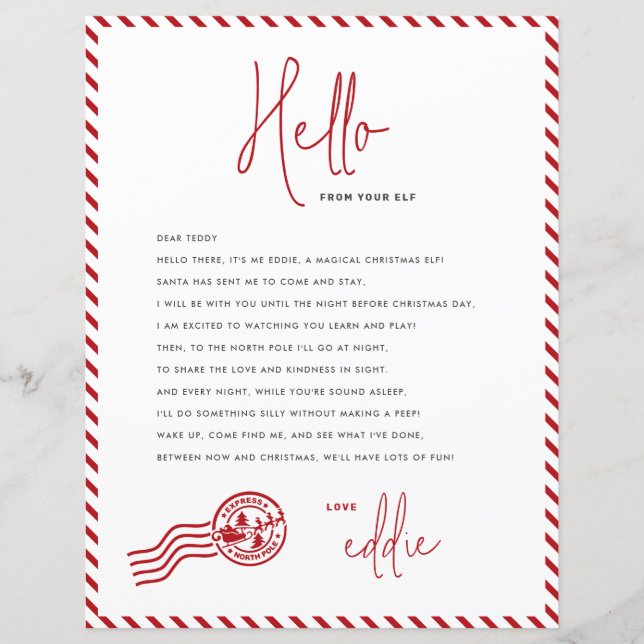 Hello
FROM YOUR ELF
DEAR TEDDY
HELLO THERE, IT'S ME EDDIE, A MAGICAL CHRISTMAS ELF!
SANTA HAS SENT ME TO COME AND STAY,
I WILL BE WITH YOU UNTIL THE NIGHT BEFORE CHRISTMAS DAY,
I AM EXCITED TO WATCHING YOU LEARN AND PLAY!
THEN, TO THE NORTH POLE I'LL GO AT NIGHT,
TO SHARE THE LOVE AND KINDNESS IN SIGHT.
AND EVERY NIGHT, WHILE YOU'RE SOUND ASLEEP,
I'LL DO SOMETHING SILLY WITHOUT MAKING A PEEP!
WAKE UP, COME FIND ME, AND SEE WHAT I'VE DONE,
BETWEEN NOW AND CHRISTMAS, WE'LL HAVE LOTS OF FUN!
EXPRESS
NORTH POLE
LOVE
eddie